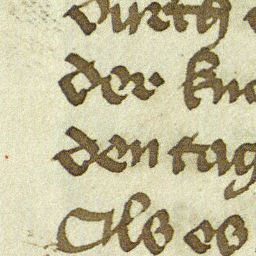 durch
der kne
den tag
Als es